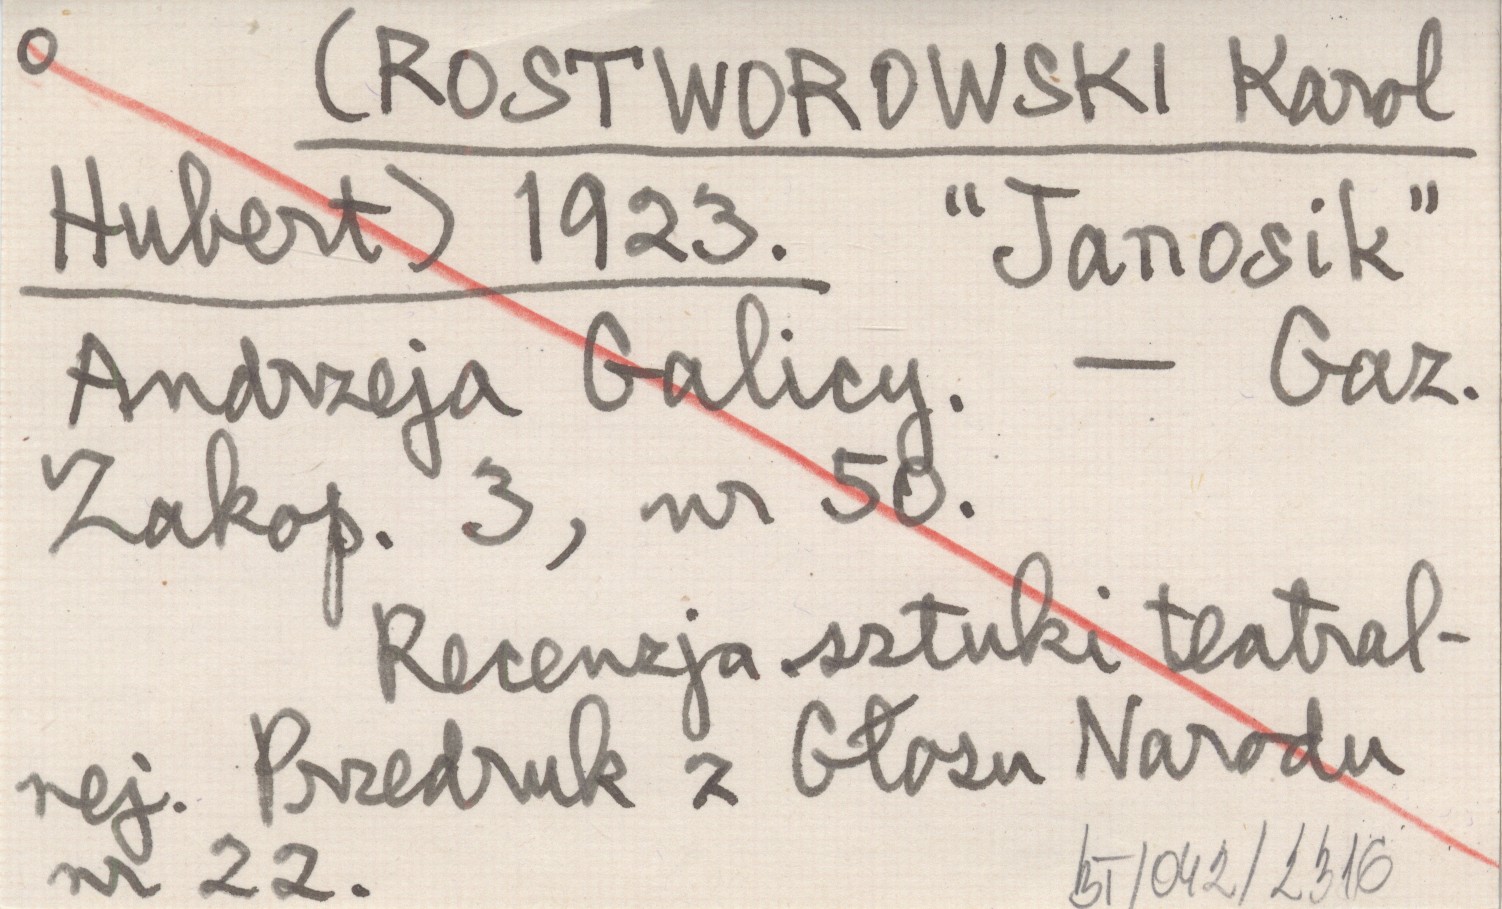 o (ROSTWOROWSKI Karol
Hubert) 1923. "Janosik"
Andrzeja Galicy. — Gaz.
Zakop. 3, nr 50.
Recenzja sztuki teatral-
nej. Przedruk z Głosu Narodu
nr 22.
BT/042/2316